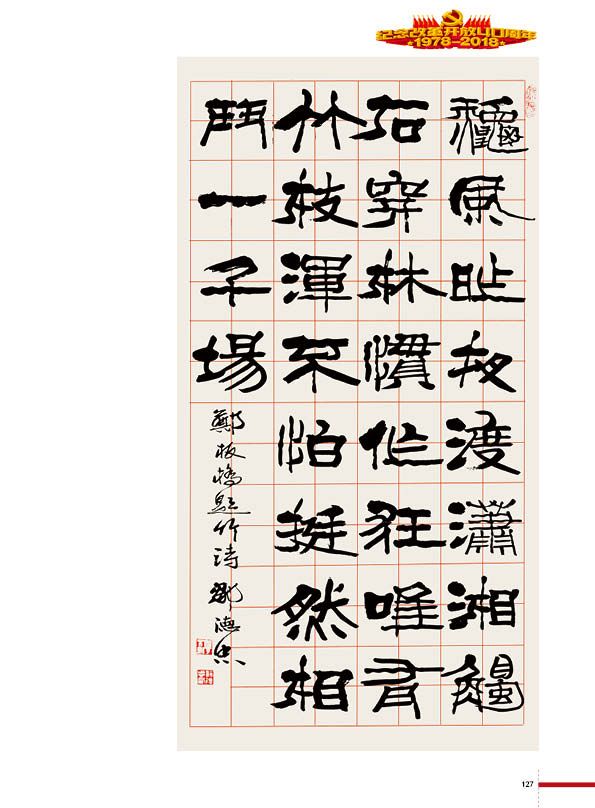 纪念改革开放40周年
1978-2018
龝風昨夜渡瀟湘觸
石穿林慣作狂唯有
竹枝渾不怕挺然相
鬥一千場
鄭板橋題竹詩 德
127